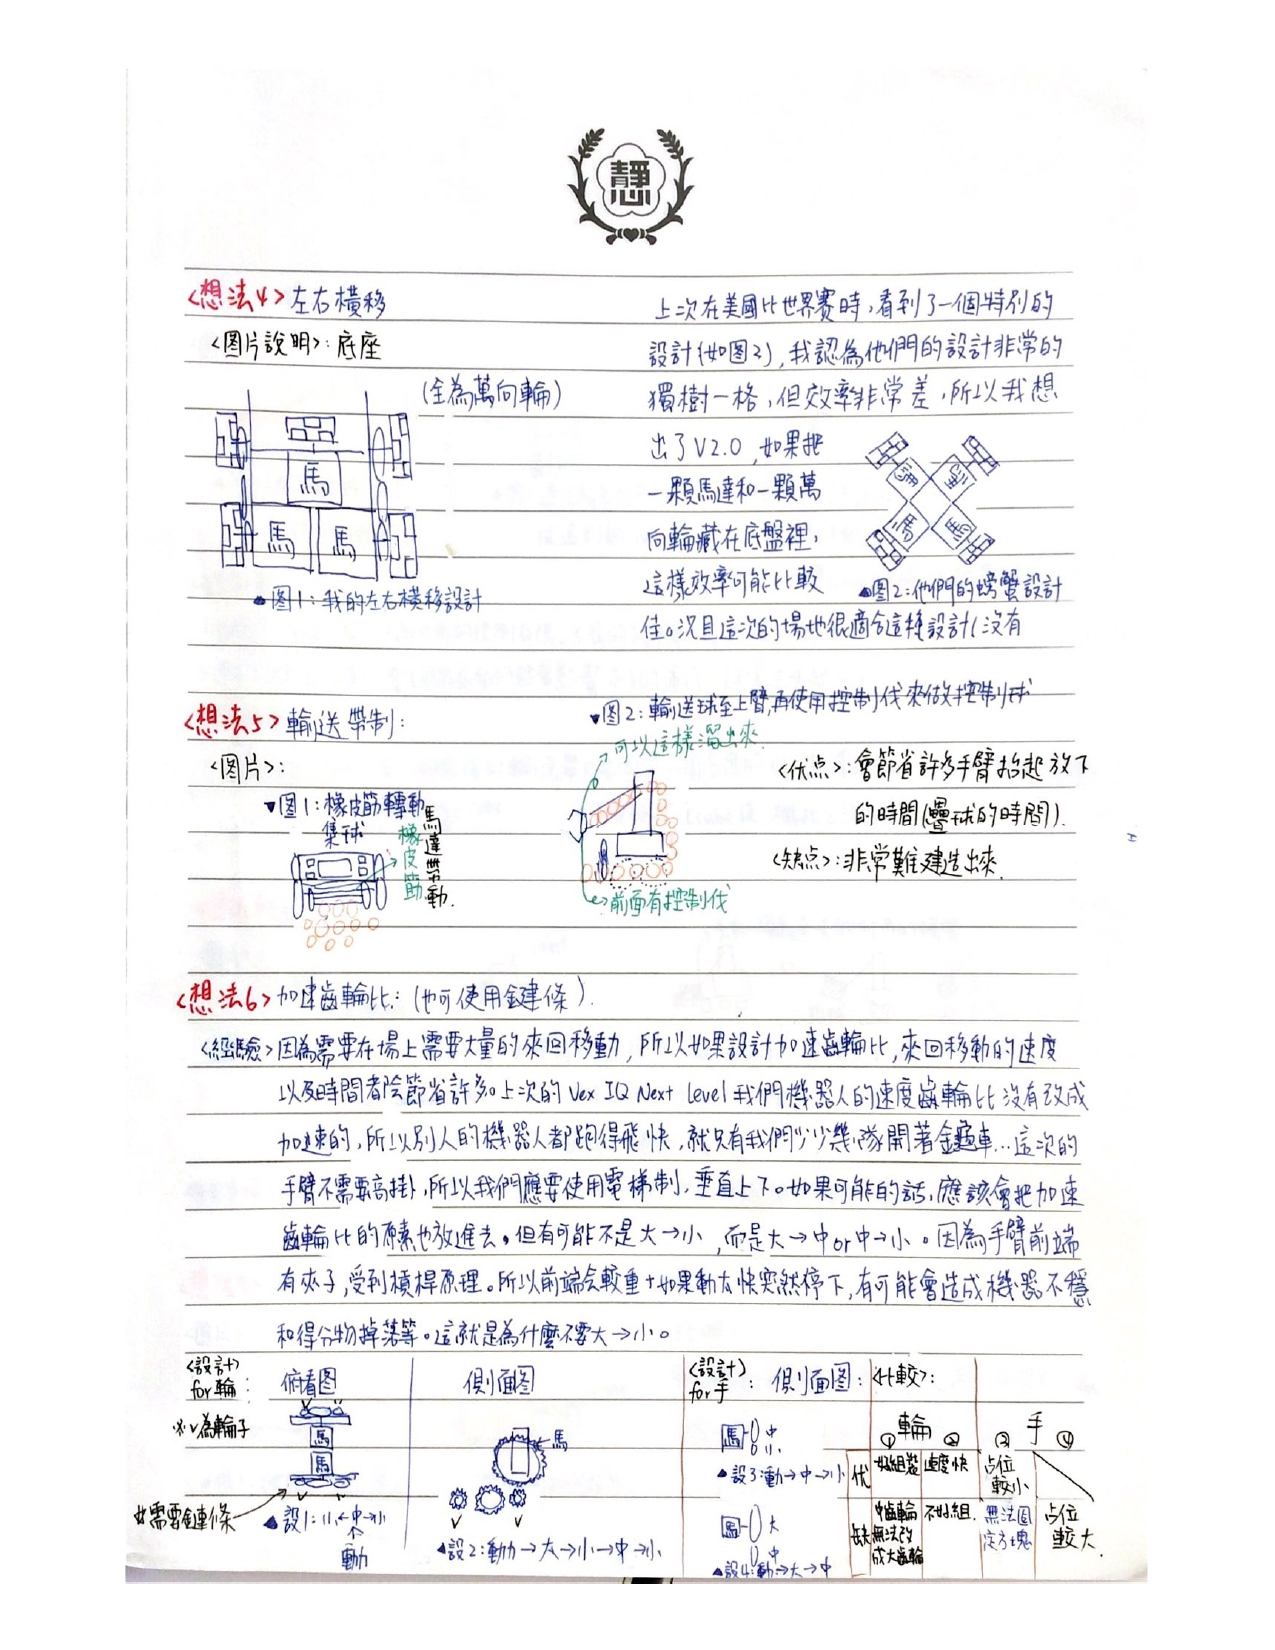 靜思
<想法4>左右橫移
<图片說明>:底座
(全為萬向輪)
馬
馬 馬
▲图1:我的左右橫移設計
上次在美國比世界賽時,看到了一個特別的
設計(如图2),我認為他們的設計非常的
獨樹一格,但效率非常差,所以我想
出了V2.0,如果把
一顆馬達和一顆萬
向輪藏在底盤裡,
這樣效率可能比較
佳。況且這次的場地很適合這種設計(沒有
馬 馬
馬 馬
▲图2:他們的螃蟹設計
<想法5>輸送帶制:
<图片>:
▼图1:橡皮筋轉動
集球
橡皮筋
馬達帶動.
▼图2:輸送球至上臂,再使用控制伐來做控制球
可以這樣溜出來.
前面有控制伐
<优点>:會節省許多手臂抬起放下
的時間(疊球的時間).
<缺点>:非常難建造出來.
<想法6>加速齒輪比:(也可使用鏈條).
<經驗>因為需要在場上需要大量的來回移動,所以如果設計加速齒輪比,來回移動的速度
以及時間都會節省許多。上次的Vex IQ Next Level我們機器人的速度齒輪比沒有改成
加速的,所以別人的機器人都跑得飛快,就只有我們少少幾隊開著龜車...這次的
手臂不需要高掛,所以我們應要使用電梯制,垂直上下。如果可能的話,應該會把加速
齒輪比的原素也放進去。但有可能不是大→小,而是大→中or中→小。因為手臂前端
有夾子,受到槓桿原理。所以前端会較重+如果動太快突然停下,有可能會造成機器不穩
和得分物掉落等。這就是為什麼不要大→小。
<設計>
for輪:
※v為輪子
俯看图
馬
馬
需要鏈條
▲設1:小←中→小
↑
動力
側面图
馬
▲設2:動力→大→小→中→小
<設計>
for手:
側面图:
馬 中
小
▲設3:動→中→小
馬 大
中
▲設4:動→大→中
<比較>:
輪 手
① ② ③ ④
优 好組裝 速度快 占位較小
缺 中齒輪無法改成大齒輪 不好組. 無法固定方塊 占位較大.